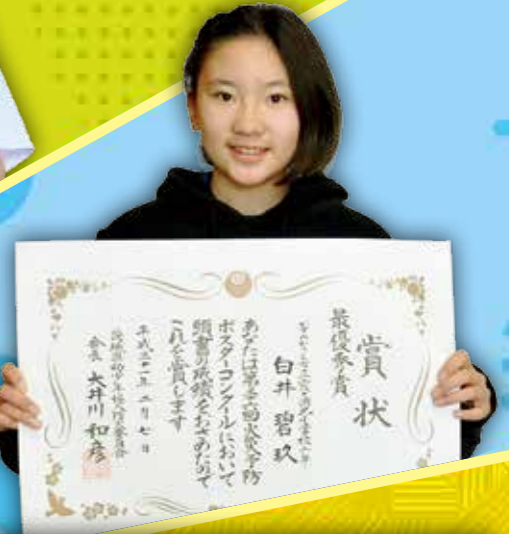 賞状
最優秀賞
臼井 碧玖
あなたは第三回火災予防
ポスターコンクールにおいて
頭書の成績をおさめたので
これを賞します
平成三十一年二月七日
会長 大井川 和彦